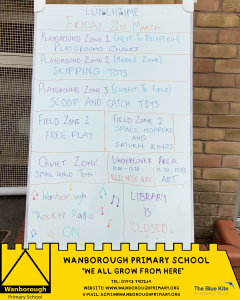 LUNCHTIME
FRIDAY 21st MARCH
PLAYGROUND ZONE 1 (NEXT TO RECEPTION)
PLAYGROUND CHALKS
PLAYGROUND ZONE 2 (MIDDLE ZONE)
SKIPPING TOYS
PLAYGROUND ZONE 3 (CLOSEST TO FIELD)
SCOOP AND CATCH TOYS
FIELD ZONE 1
FREE PLAY
FIELD ZONE 2
SPACE HOPPERS
AND
SATURN RINGS
QUIET ZONE
SMALL WORLD TOYS
UNDERCOVER AREA
RED NOSE DAY ART
Wanborough
Rockin' Radio
is ON
LIBRARY
IS
CLOSED
WANBOROUGH PRIMARY SCHOOL
'WE ALL GROW FROM HERE'
WEBSITE: WWW.WANBOROUGHPRIMARY.ORG
E-MAIL: ADMIN@WANBOROUGHPRIMARY.ORG
Wanborough
Primary School
The Blue Kite